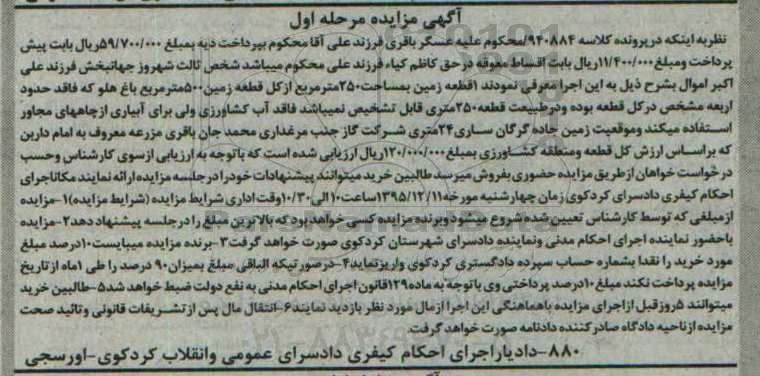 آگهی مزایده مرحله اول
نظربه اینکه درپرونده کلاسه ۹۴۰۸۸۴/محکوم علیه عسگر باقری فرزند علی آقا محکوم بپرداخت دیه بمبلغ ۵۹/۷۰۰/۰۰۰ریال بابت پیش
پرداخت ومبلغ۱۱/۴۰۰/۰۰۰ریال بابت اقساط معوقه درحق کاظم کیاء فرزند علی محکوم میباشد شخص ثالث شهروز جهانبخش فرزند علی
اکبر اموال بشرح ذیل به این اجرا معرفی نمودند ۱قطعه زمین بمساحت۲۵۰مترمربع ازکل قطعه زمین۵۰۰مترمربع باغ هلو که فاقد حدود
اربعه مشخص درکل قطعه بوده ودرطبیعت قطعه۲۵۰متری قابل تشخیص نمیباشد فاقد آب کشاورزی ولی برای آبیاری ازچاههای مجاور
استفاده میکند وموقعیت زمین جاده گرگان ساری۲۴متری شرکت گاز جنب مرغداری محمد جان باقری مزرعه معروف به امام دارین
که براساس ارزش کل قطعه ومنطقه کشاورزی بمبلغ۱۲۰/۰۰۰/۰۰۰ریال ارزیابی شده است که باتوجه به ارزیابی ازسوی کارشناس وحسب
درخواست خواهان ازطریق مزایده حضوری بفروش میرسد طالبین خرید میتوانند پیشنهادات خودرا درجلسه مزایده ارائه نمایند مکانا اجرای
احکام کیفری دادسرای کردکوی زمان چهارشنبه مورخه۱۳۹۵/۱۲/۱۱ساعت۱۰الی۱۰/۳۰وقت اداری شرایط مزایده (شرایط مزایده)۱-مزایده
ازمبلغی که توسط کارشناس تعیین شده شروع میشود وبرنده مزایده کسی خواهد بود که بالاترین مبلغ را درجلسه پیشنهاد دهد۲-مزایده
باحضور نماینده اجرای احکام مدنی ونماینده دادسرای شهرستان کردکوی صورت خواهد گرفت۳-برنده مزایده میبایست۱۰درصد مبلغ
مورد خرید را نقدا بشماره حساب سپرده دادگستری کردکوی واریزنماید۴-درصورتیکه الباقی مبلغ بمیزان۹۰ درصد را طی ۱ماه ازتاریخ
مزایده پرداخت نکند مبلغ۱۰درصد پرداختی وی باتوجه به ماده۱۲۹قانون اجرای احکام مدنی به نفع دولت ضبط خواهد شد۵-طالبین خرید
میتوانند ۵روزقبل ازاجرای مزایده باهماهنگی این اجرا ازمال مورد نظر بازدید نمایند۶-انتقال مال پس ازتشریفات قانونی وتائید صحت
مزایده ازناحیه دادگاه صادرکننده دادنامه صورت خواهد گرفت.
۸۸۰-دادیاراجرای احکام کیفری دادسرای عمومی وانقلاب کردکوی-اورسجی